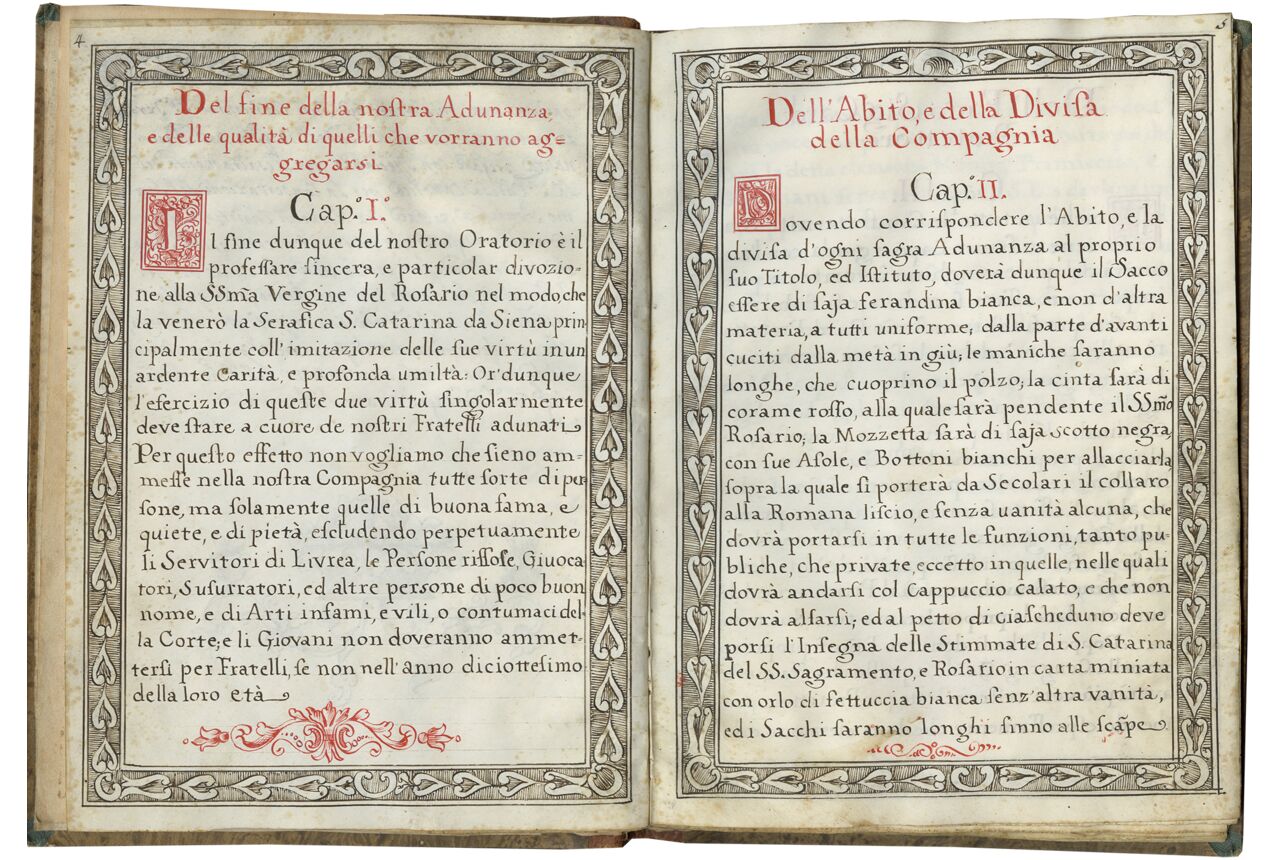 4.
Del fine della nostra Adunanza,
e delle qualità di quelli che vorranno ag=
gregarsi.
Cap.º I.º
Il fine dunque del noſtro Oratorio è il
profeſſare ſincera, e particolar divozio=
ne alla SSm̃a Vergine del Rosario nel modo, che
la venerò la Serafica S. Catarina da Siena prin
cipalmente coll' imitazione delle ſue virtù in un
ardente Carità, e profonda umiltà: Or' dunque
l'eſercizio di queſte due virtù ſingolarmente
deve ſtare a cuore de noſtri Fratelli adunati
Per queſto effetto non vogliamo che ſieno am=
meſſe nella noſtra Compagnia tutte ſorte di per
ſone, ma ſolamente quelle di buona fama, e
quiete, e di pietà, eſcludendo perpetuamente
li Servitori di Livrea, le Perſone riſſoſe, Giuoca
tori, Suſurratori, ed altre persone di poco buon
nome, e di Arti infami, e vili, o contumaci del=
la Corte; e li Giovani non doveranno ammet=
terſi per Fratelli, ſe non nell' anno diciotteſimo
della loro età
5
Dell' Abito, e della Diviſa
della Compagnia
Cap.º II.
Dovendo corriſpondere l'Abito, e la
diviſa d'ogni ſagra Adunanza al proprio
ſuo Titolo, ed Iſtituto, doverà dunque il Sacco
eſſere di ſaja ferandina bianca, e non d'altra
materia, a tutti uniforme; dalla parte d'avanti
cuciti dalla metà in giù; le maniche ſaranno
longhe, che cuoprino il polzo; la cinta ſarà di
corame roſſo, alla quale ſarà pendente il SSm̃o
Rosario; la Mozzetta ſarà di ſaja scotto negra,
con ſue Aſole, e Bottoni bianchi per allacciarla
ſopra la quale ſi porterà da Secolari il collaro
alla Romana liſcio, e ſenza vanità alcuna, che
dovrà portarſi in tutte le funzioni, tanto pu=
bliche, che private, eccetto in quelle, nelle quali
dovrà andarſi col Cappuccio calato, e che non
dovrà alſarſi; ed al petto di ciaſcheduno deve
porſi l'Inſegna delle Stimmate di S. Catarina
del SS. Sagramento, e Rosario in carta miniata
con orlo di fettuccia bianca ſenz' altra vanità,
ed i Sacchi ſaranno longhi ſinno alle ſcãpe